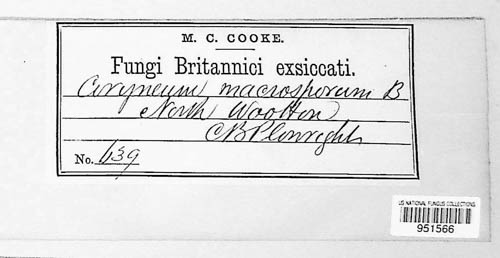 M. C. COOKE.
Fungi Britannici exsiccati.
Coryneum macrosporum B
North Wootton
CBPlowright
No. 639
US NATIONAL FUNGUS COLLECTIONS
951566